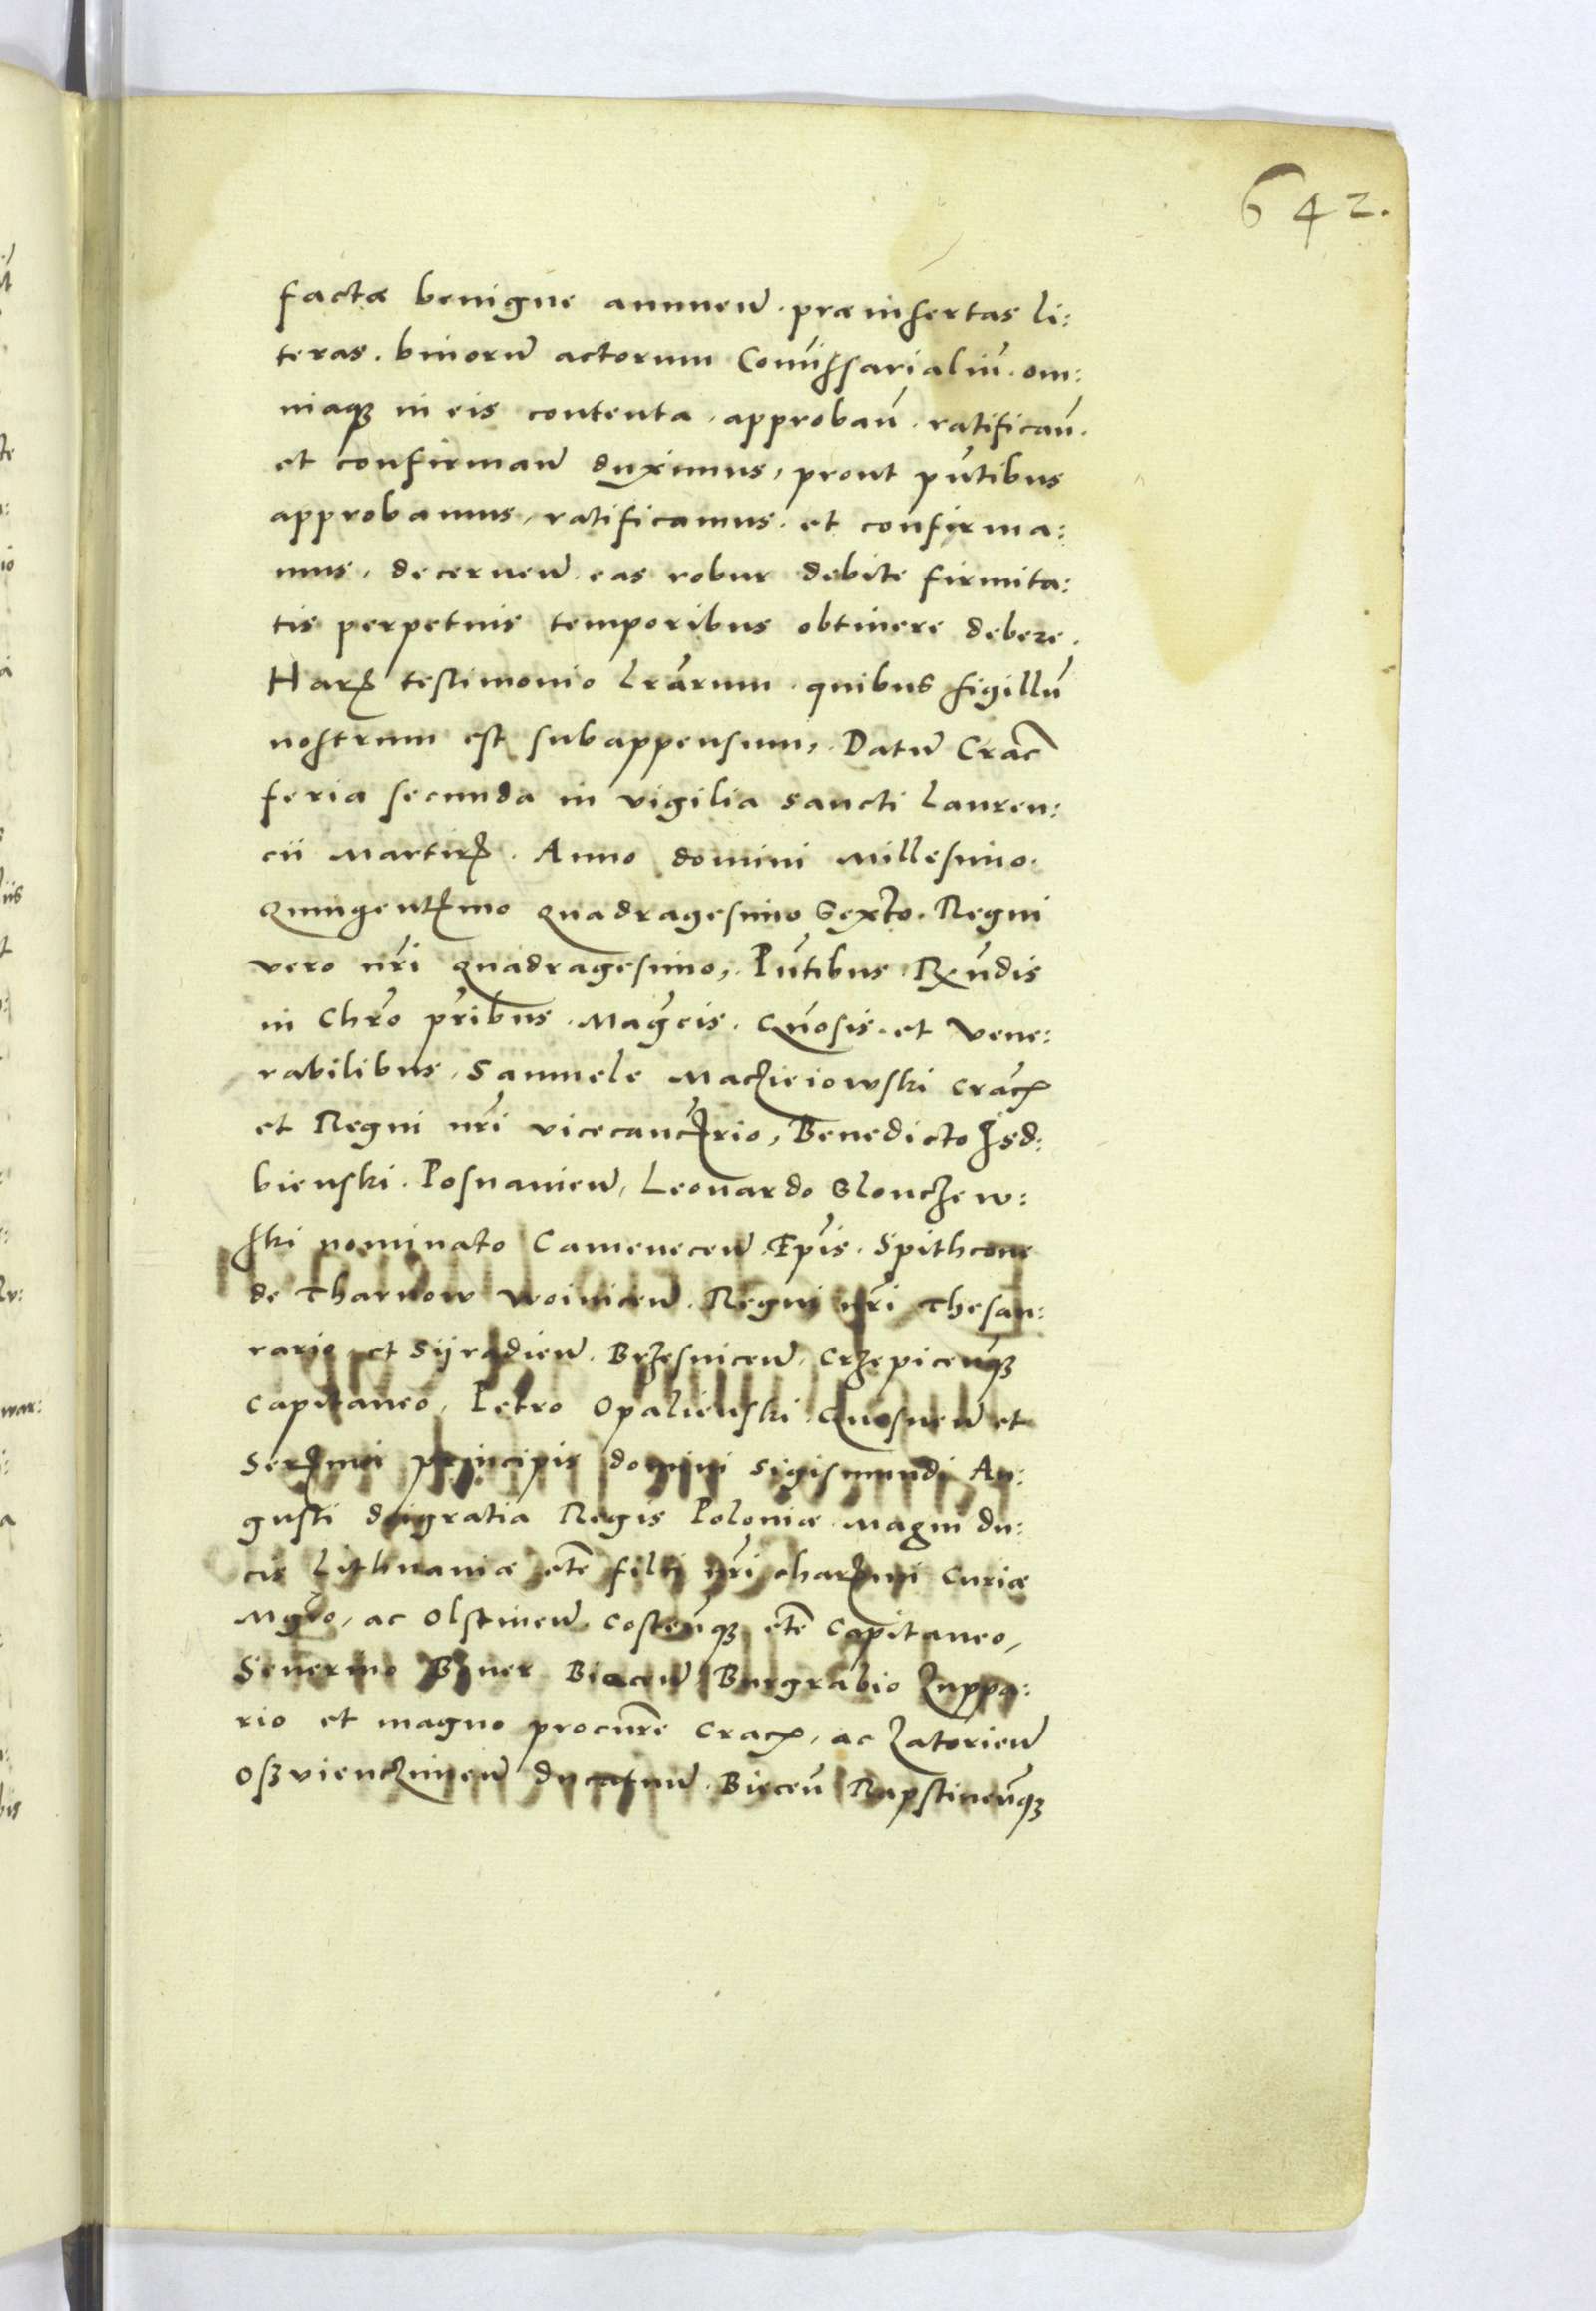 642.
factæ benigne annuen̄. præinsertas li:
teras. binorum̄ actorum Com̄issarialiū. om:
niaq3 in eis contenta. approban̄. ratifican̄.
et confirman̄ duximus, prout pn̄tibus
approbamus, ratificamus. et confirma:
mus, decernen̄. eas robur debite firmita:
tis perpetuis temporibus obtinere debere.
Harꝝ testimonio lr̄arum. quibus sigillū
nostrum est subappensum,. Datum̄ Crac̄
feria secunda in vigilia sancti Lauren:
cii Martirꝭ. Anno domini Millesimo.
Quingentꝭmo Quadragesimo Sexto. Regni
vero nr̄i Quadragesimo,. Pn̄tibus Rꝭn̄dis
in Chr̄o pr̄ibus. Mag̅cis. Gn̄osis. et Vene:
rabilibus. Samuele Maczieiowski Crac̄
et Regni nr̄i vicecanc̄rio, Benedicto Isd:
bienski. Posnanien̄, Leonardo Slonczew:
ski nominato Camenecen̄. Ep̄is. Spithcone
de Tharnow Woinicen̄. Regni nr̄i Thesau:
rario et Syradien̄. Brzesnicen̄. Crzepicen̄q3
Capitaneo, Petro Opalienski. Gnesnen̄ et
Serꝭmi principis domini Sigismundi Au:
gusti dei gratia Regis Poloniæ. Magni du:
cis Lithuaniæ etc̄ filii nr̄i charꝭmi Curiæ
Mgr̄o, ac Olstinen̄. Costen̄q3 etc̄ Capitaneo,
Seuerino Boner Biecen̄. Burgrabio Zuppa:
rio et magno procur̄e Crac̄, ac Zatorien̄
Oszvienczimen̄ ducatuum̄. Biecen̄ Rapstinen̄q3